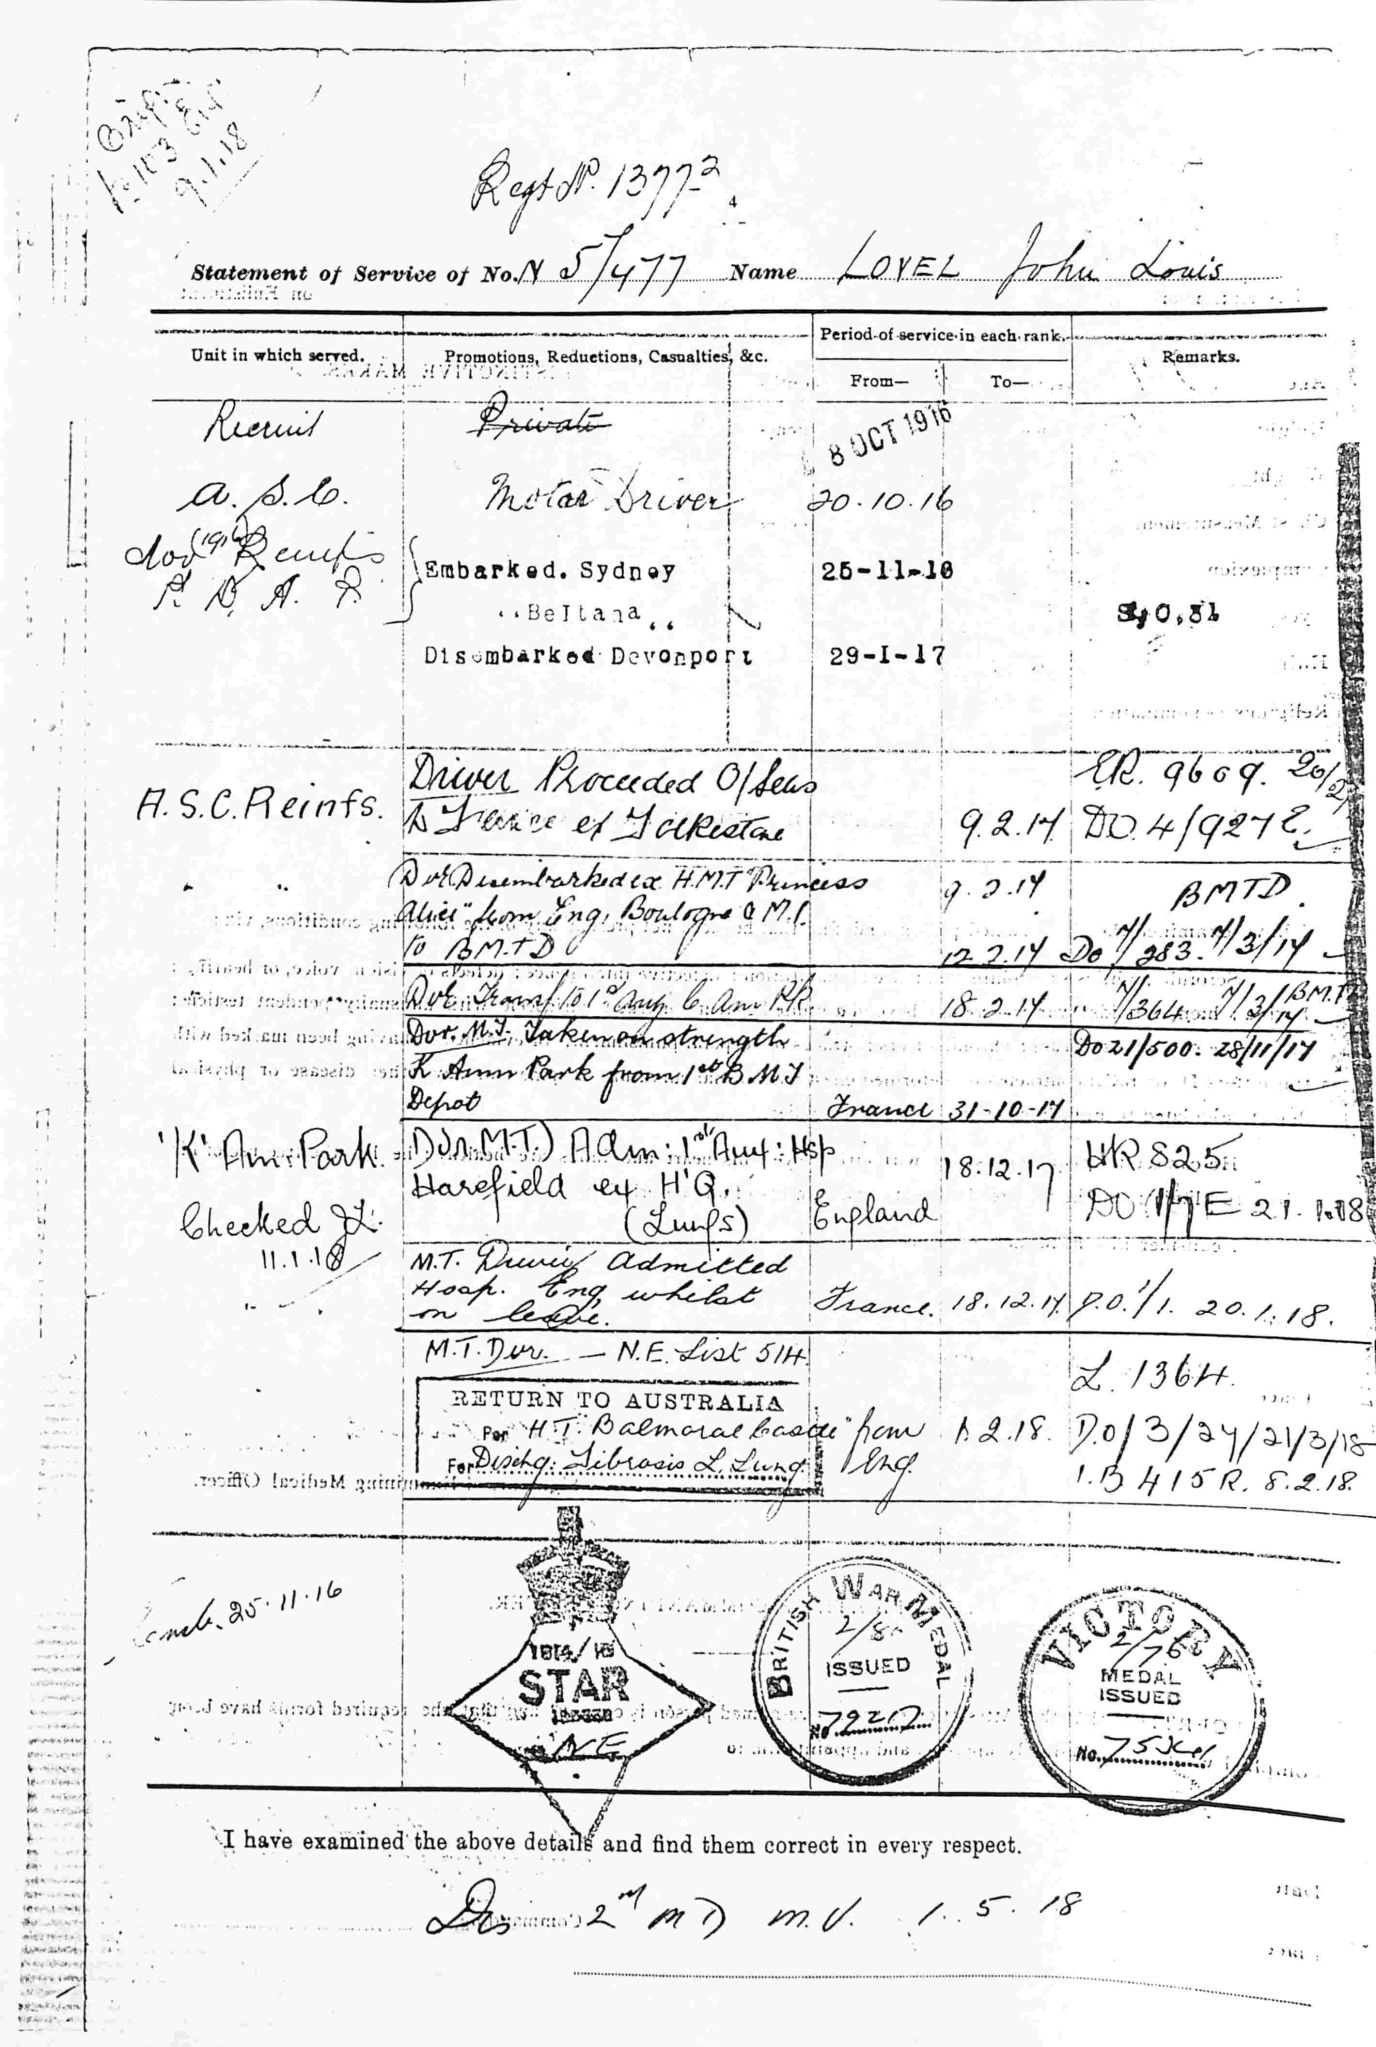 9.1.18
Regt No. 13772
Statement of Service of No. N 5/477 Name LOVEL John Louis
Unit in which served. Promotions, Reductions, Casualties, &c. Period of service in each rank. Remarks.
From— To—
Recruit Private 8 OCT 1916
A. S. C. Motor Driver 20.10.16
Nov (1916) Reinfs
P. D. A. P.
Embarked. Sydney 25-11-16
"Beltana"
Disembarked Devonport 29-1-17
A.S.C. Reinfs. Driver Proceeded O/Seas ER. 9609. 20/2/
to France ex Folkestone 9.2.17 DO. 4/927 E.
" " Dvr Disembarked ex H.M.T "Princess 9.2.17 BMTD.
Alice" from Eng, Boulogne & M.I.
to BMTD 12.2.17 Do 7/283. 7/3/17
Dvr Transf to 1st Aux C Am Pk 18.2.17 7/364 7/3/17 BMTD
Dvr. M.T. Taken on strength Do 21/500. 28/11/17
K Amm Park from 1st B M T
Depot France 31-10-17
'K' Am: Park. Dvr M.T.) Adm: 1st Aux: Hsp 18.12.17 HR 825
Harefield ex H'Q. DO 1/7E 21.1.18
(Lungs) England
Checked JL.
11.1.18
M.T. Driver Admitted
Hosp. Eng whilst France. 18.12.17 D.O. 1/1. 20.1.18.
on leave.
M.T. Dvr. — N.E. List 514 L. 1364.
RETURN TO AUSTRALIA
Per H.T. "Balmoral Castle" from Eng. 1.2.18. D.O/3/27/21/3/18
For Dischg: Fibrosis L. Lung I.B 415 R. 8.2.18.
25.11.16
1914/15
STAR
ISSUED
No NE
BRITISH WAR MEDAL
2/8
ISSUED
No. 79217
VICTORY
2/76
MEDAL
ISSUED
No.
I have examined the above details and find them correct in every respect.
Dis 2nd MD M.U. 1.5.18